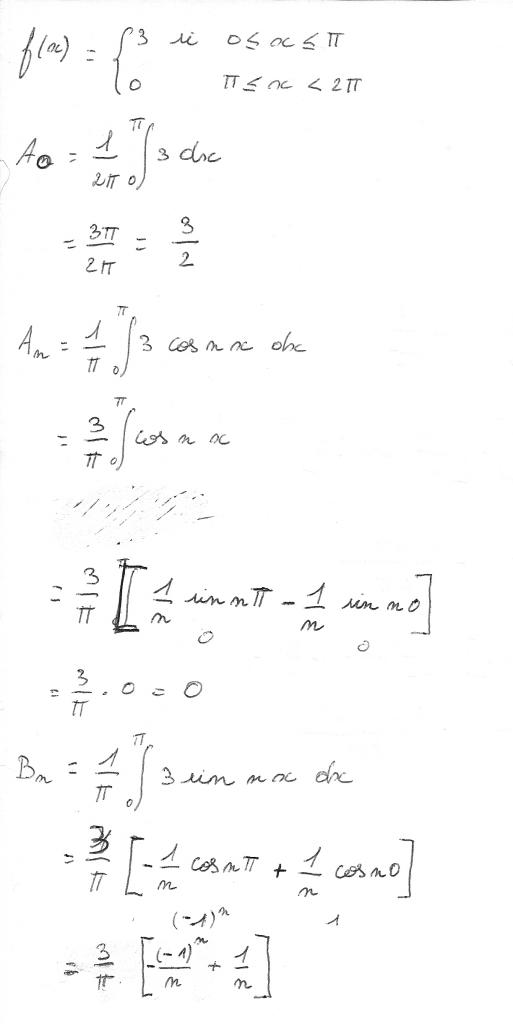 f(x) = { 3 si 0 ≤ x ≤ π
0 π ≤ x < 2π
A₀ = 1/2π ∫₀^π 3 dx
= 3π/2π = 3/2
Aₙ = 1/π ∫₀^π 3 cos n x dx
= 3/π ∫₀^π cos n x
= 3/π [ 1/n sin nπ - 1/n sin n0 ]
0 0
= 3/π · 0 = 0
Bₙ = 1/π ∫₀^π 3 sin n x dx
= 3/π [ -1/n cos nπ + 1/n cos n0 ]
(-1)ⁿ 1
= 3/π [ -(-1)ⁿ/n + 1/n ]